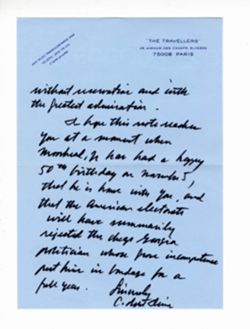 "THE TRAVELLERS"
25 AVENUE DES CHAMPS ELYSEES
75008 PARIS
without reservation and with
the greatest admiration.
I hope this note reaches
you at a moment when
Moorhead, Jr has had a happy
50th birthday on March 5,
that he is home with you, and
that the American electorate
will have summarily
rejected the Georgia
politician whose gross incompetence
put him in bondage for a
full year.
Sincerely